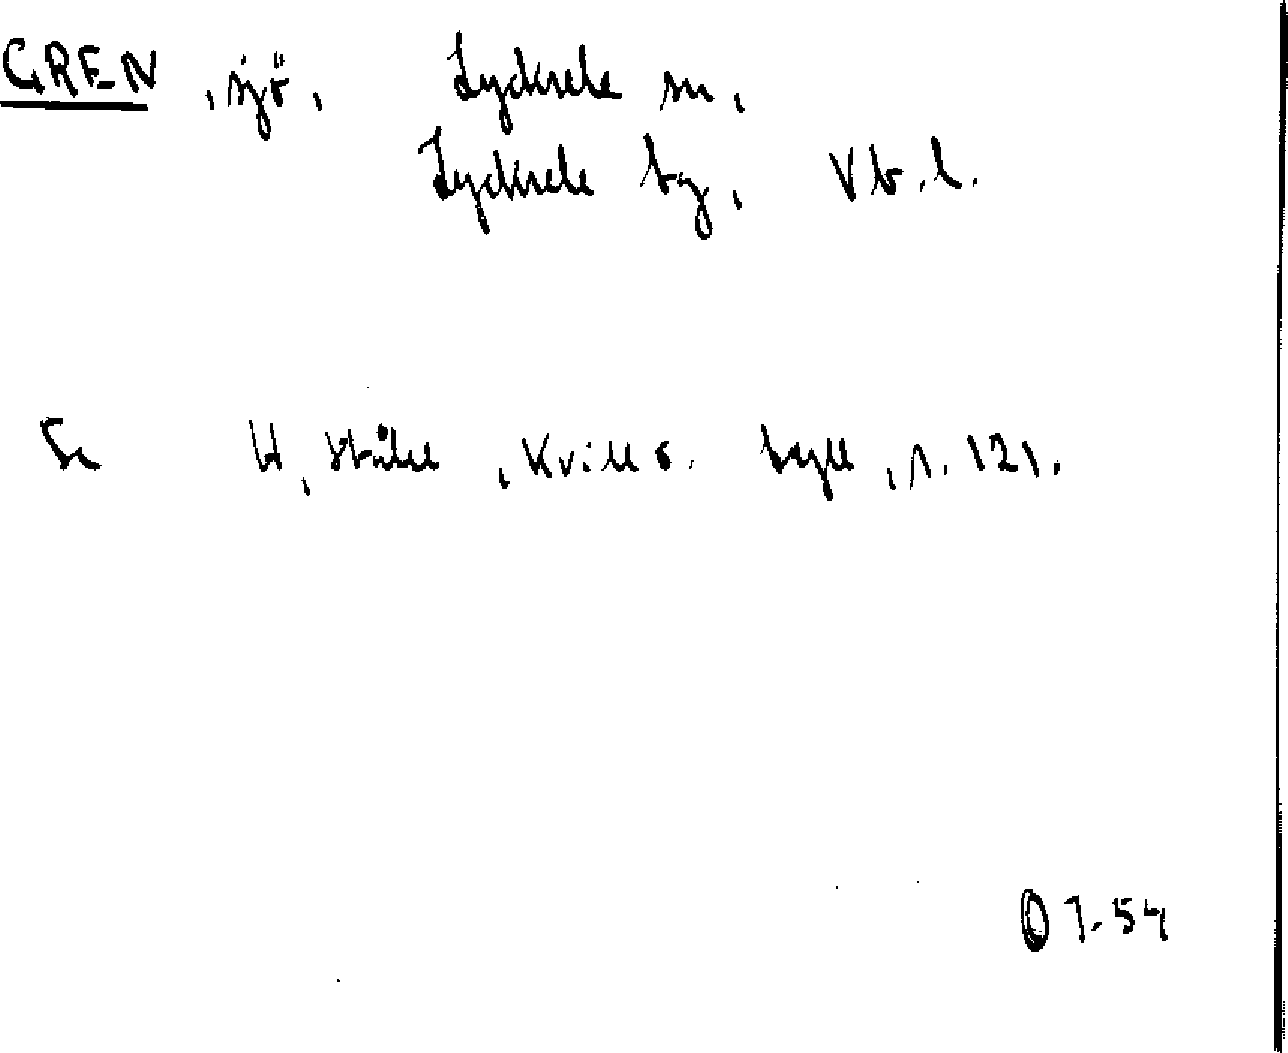 GREN, sjö, Lycksele sn,
Lycksele by, Vb.l.
Se H, Ståhl, Kvill o. tyll, s. 121.
7.54